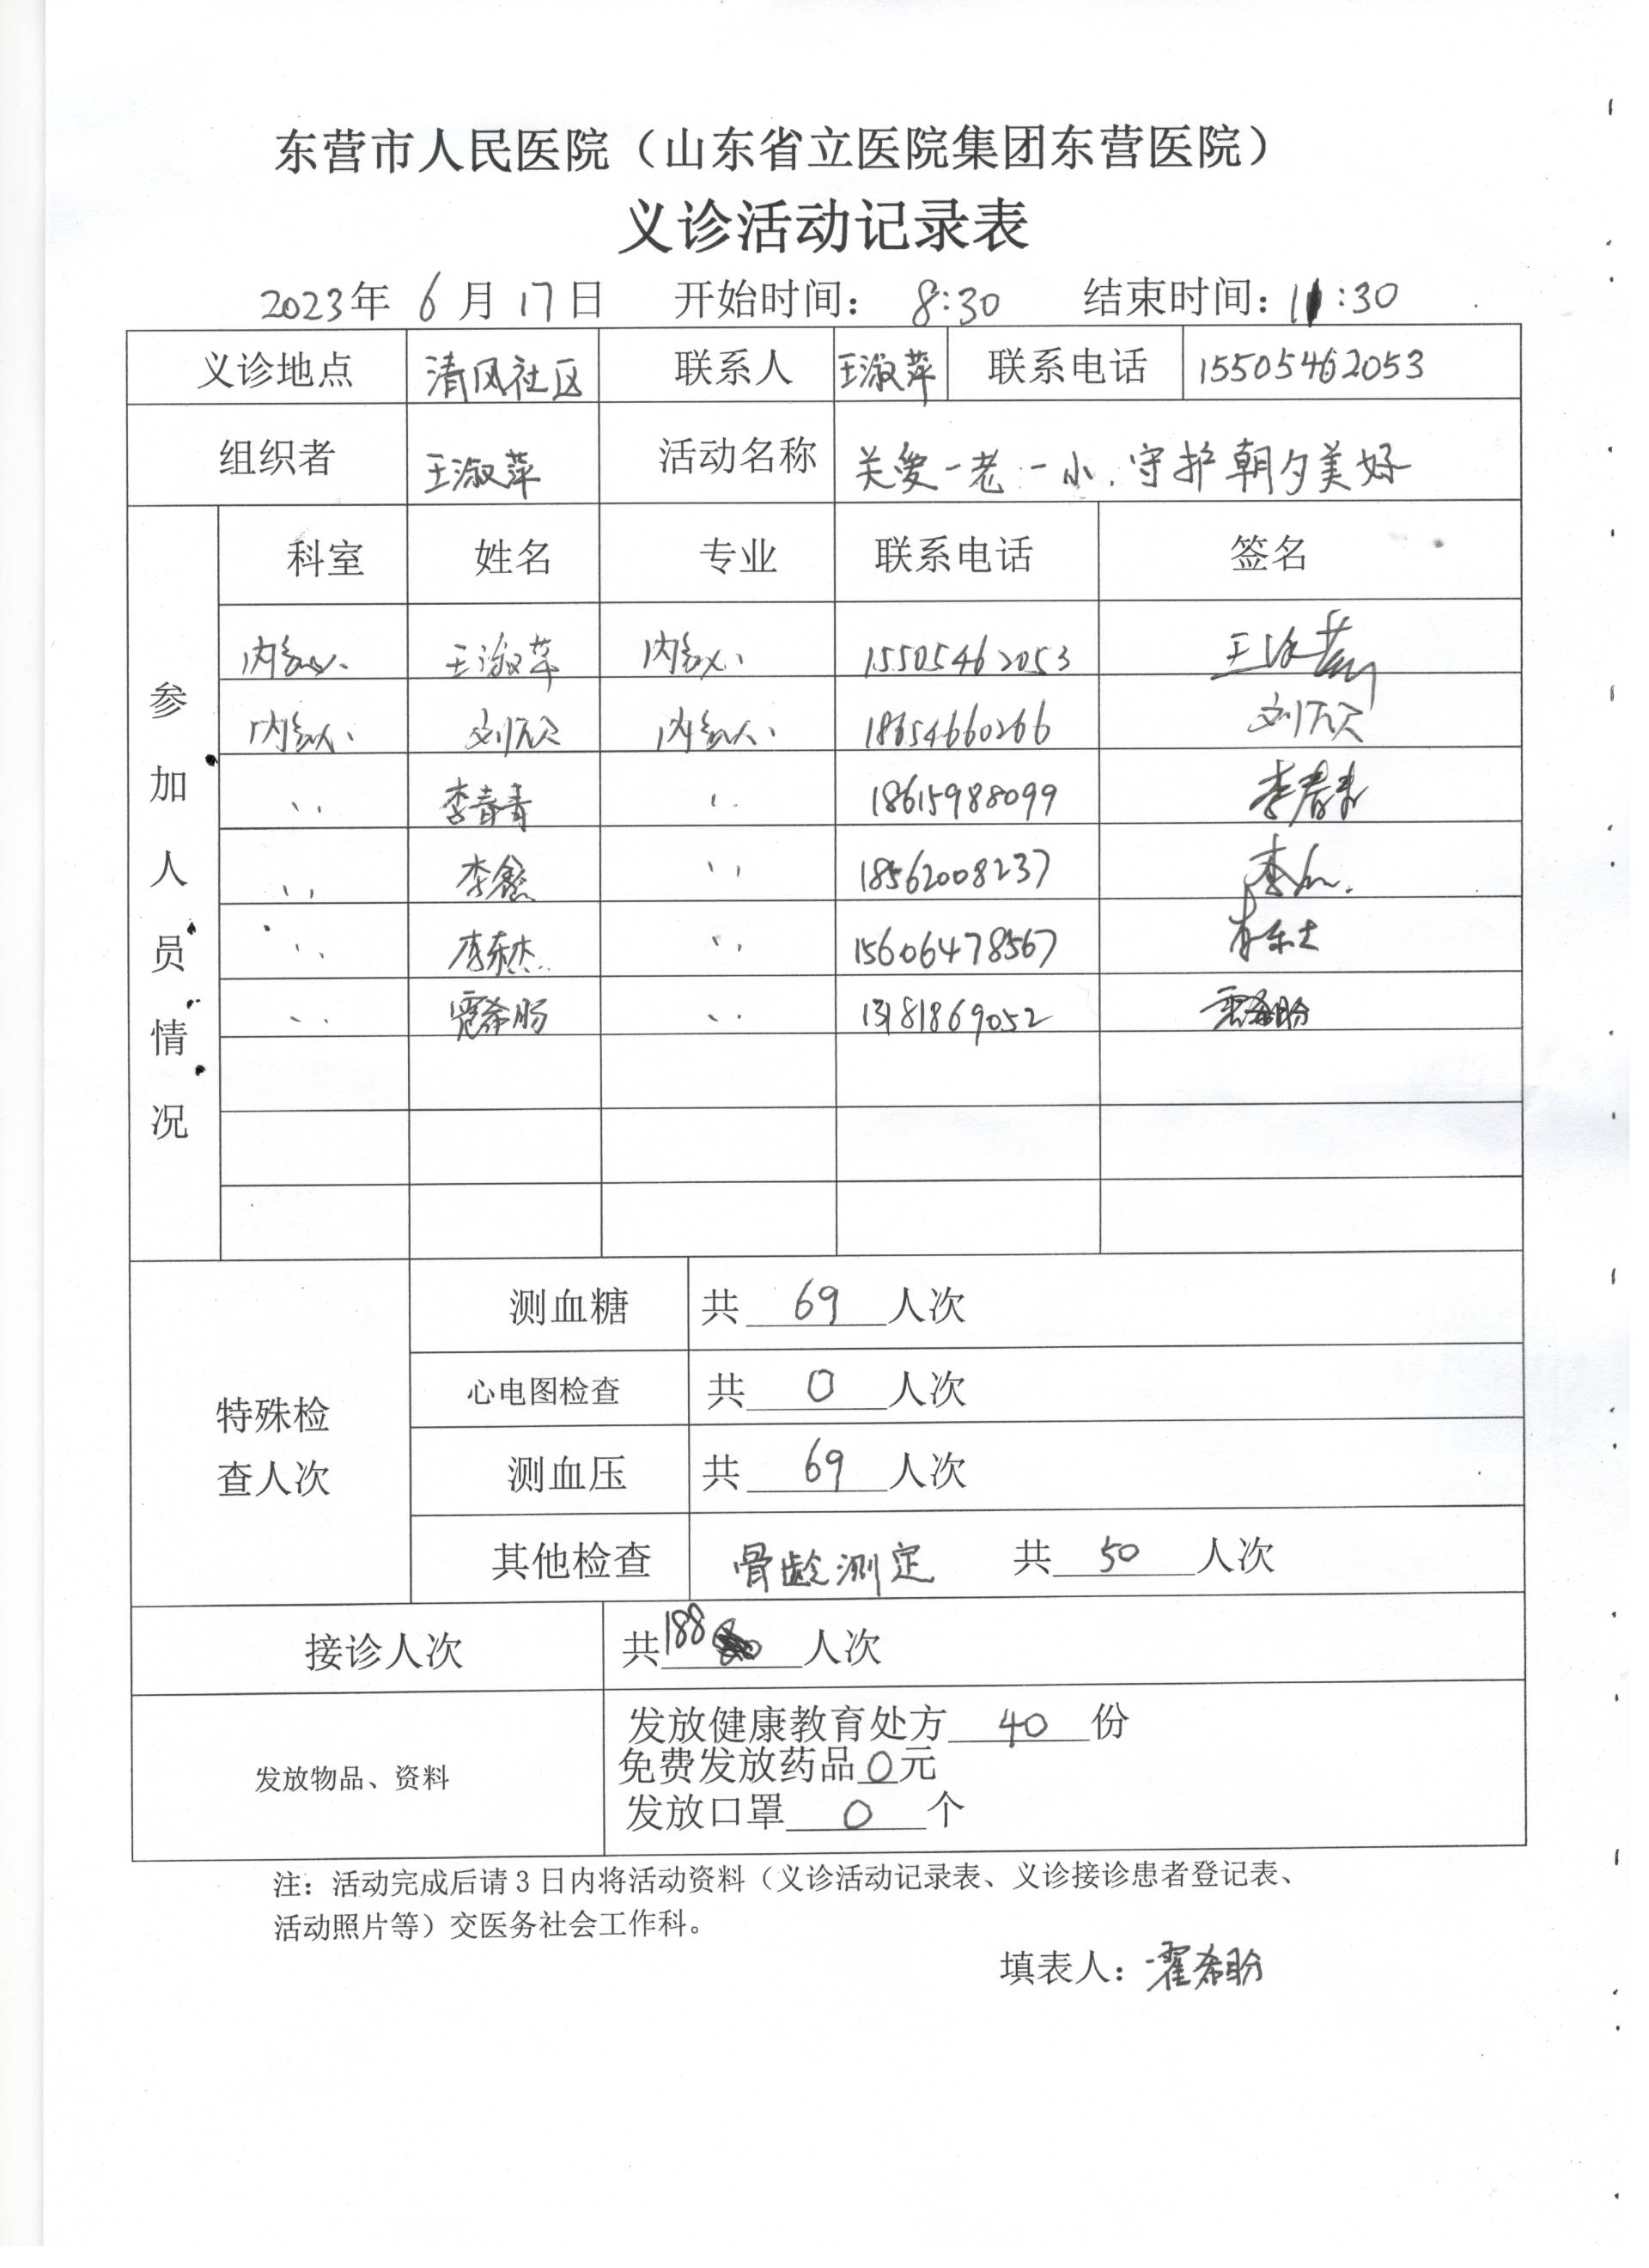 东营市人民医院（山东省立医院集团东营医院）
义诊活动记录表
2023年 6月 17日 开始时间： 8:30 结束时间：11:30
义诊地点 清风社区 联系人 王淑萍 联系电话 15505462053
组织者 王淑萍 活动名称 关爱一老一小.守护朝夕美好
参加人员情况
科室 姓名 专业 联系电话 签名
王淑萍 15505462053
刘欣 18654660266 刘欣
李春青 18615988099 李春青
李鑫 18562008237
李东杰 15606478567
希盼 13181869052 希盼
特殊检查人次
测血糖 共 69 人次
心电图检查 共 0 人次
测血压 共 69 人次
其他检查 骨龄测定 共 50 人次
接诊人次 共 188 人次
发放物品、资料
发放健康教育处方 40 份
免费发放药品 0 元
发放口罩 0 个
注：活动完成后请 3 日内将活动资料（义诊活动记录表、义诊接诊患者登记表、
活动照片等）交医务社会工作科。
填表人：希盼